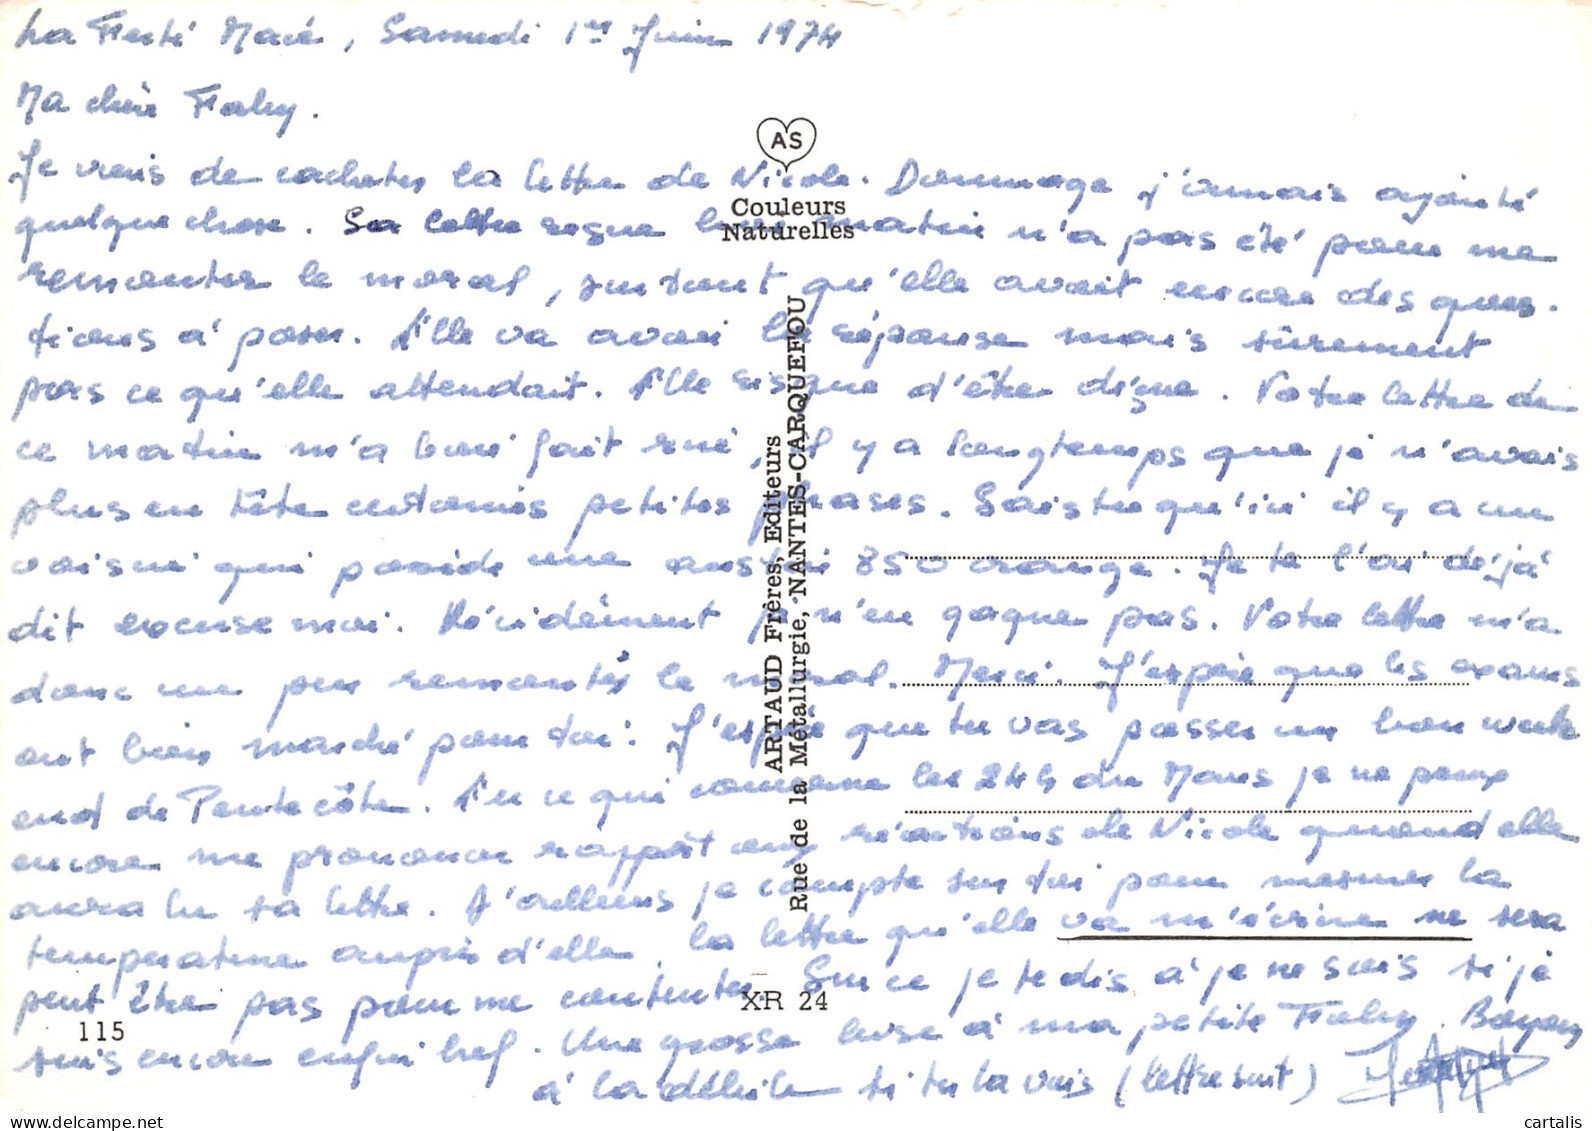 La Ferté Macé, Samedi 1er Juin 1974
Ma chère Fahy.
Je viens de cacheter la lettre de Nicole. Dommage j'aurais ajouté
quelque chose. Sa lettre reçue hier matin n'a pas été pour me
remonter le moral, surtout qu'elle avait encore des ques-
tions à poser. Elle va avoir la réponse mais sûrement
pas ce qu'elle attendait. Elle risque d'être digne. Votre lettre de
ce matin m'a bien fait rire, il y a longtemps que je n'avais
plus en tête certaines petites phrases. Sais tu qu'ici il y a un
voisin qui possède une austin 850 orange. Je te l'ai déjà
dit excuse moi. Décidément je n'en gagne pas. Votre lettre m'a
donc un peu remonter le moral. Merci. J'espère que les exams
ont bien marché pour toi. J'espère que tu vas passer un bon week
end de Pentecôte. En ce qui concerne les 24h du Mans je ne peux
encore me prononcer rapport aux réactions de Nicole quand elle
aura lu sa lettre. D'ailleurs je compte sur toi pour mesurer la
température auprès d'elle. La lettre qu'elle va m'écrire ne sera
peut être pas pour me contenter. Sur ce je te dis à je ne sais si je
suis encore enfin bref. Une grosse bise à ma petite Fahy.
à la débile si tu la vois (lettre suit)
AS
Couleurs
Naturelles
ARTAUD Frères, Editeurs
Rue de la Métallurgie, NANTES-CARQUEFOU
XR 24
115
cartalis